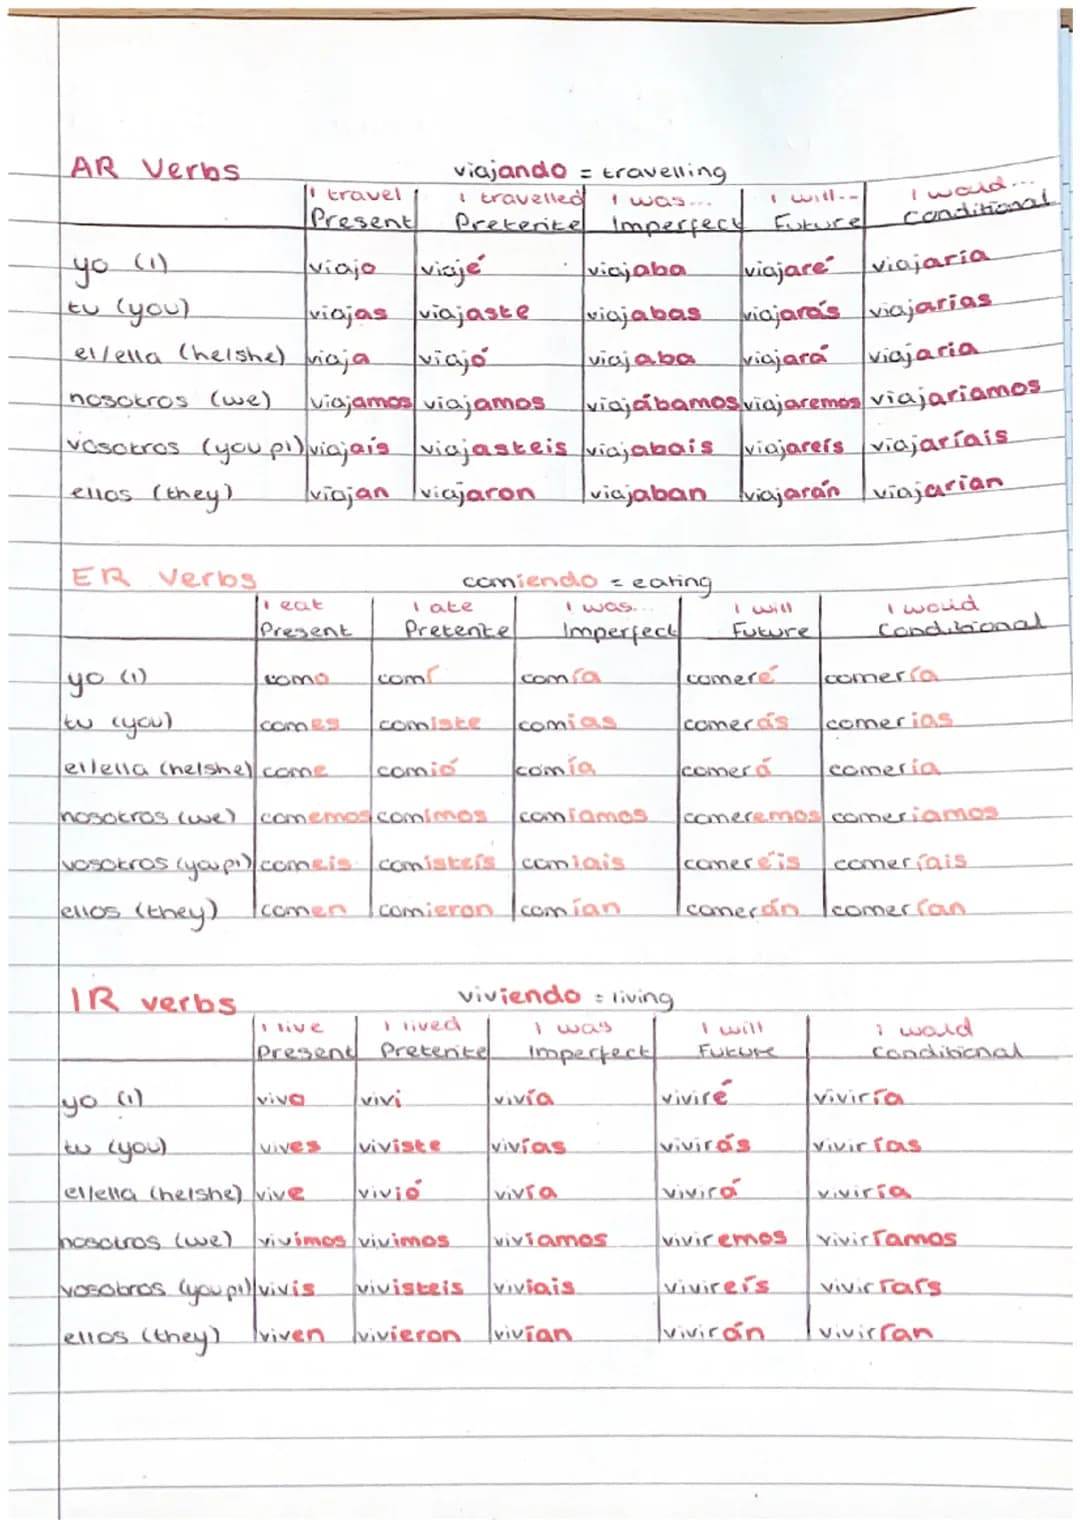 AR Verbs viajando = travelling
I travel I travelled I was... I will... I would...
Present Preterite Imperfect Future Conditional
yo (I) viajo viajé viajaba viajaré viajaría
tu (you) viajas viajaste viajabas viajarás viajarías
el/ella (he/she) viaja viajó viajaba viajará viajaria
nosotros (we) viajamos viajamos viajábamos viajaremos viajariamos
vosotros (you pl) viajaís viajasteis viajabais viajareís viajaríais
ellos (they) viajan viajaron viajaban viajarán viajarian
ER Verbs comiendo = eating
I eat I ate I was... I will I would
Present Preterite Imperfect Future Conditional
yo (I) como comí comía comeré comería
tu (you) comes comiste comias comerás comerias
el/ella (he/she) come comió comía comerá comería
nosotros (we) comemos comimos comíamos comeremos comeriamos
vosotros (you pl) comeis comisteis comiais comeréis comeríais
ellos (they) comen comieron comían comerán comerían
IR verbs viviendo = living
I live I lived I was I will I would
Present Preterite Imperfect Future Conditional
yo (I) vivo vivi vivía viviré viviría
tu (you) vives viviste vivías vivirás vivirías
el/ella (he/she) vive vivió vivía vivirá viviría
nosotros (we) vivimos vivimos vivíamos viviremos viviríamos
vosotros (you pl) vivis vivisteis viviais vivireís viviríais
ellos (they) viven vivieron vivían vivirán vivirían